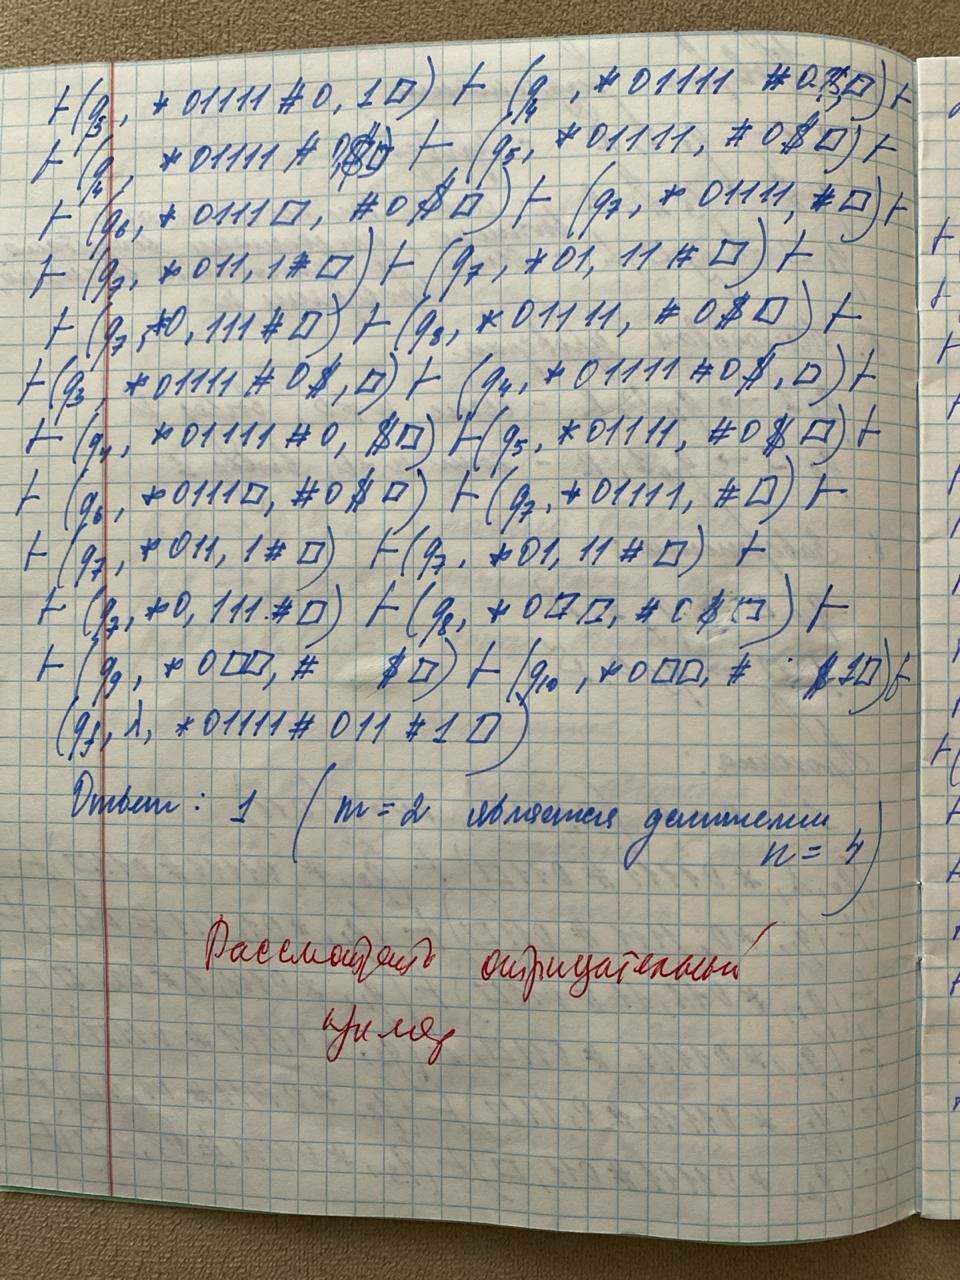 ⊢(q₃, *01111#0, 1□) ⊢ (q₄, *01111 #0 □)⊢
⊢(q₄, *01111# □) ⊢ (q₅, *01111, #0$□)⊢
⊢(q₆, *0111□, #0$□) ⊢ (q₇, *01111, #□)⊢
⊢(q₇, *011, 1#□) ⊢ (q₇, *01, 11#□) ⊢
⊢(q₇, *0, 111#□) ⊢ (q₈, *01111, #0$□) ⊢
⊢(q₃, *01111#0$, □) ⊢ (q₄, *01111#0$, □)⊢
⊢(q₄, *01111#0, $□) ⊢(q₅, *01111, #0$□)⊢
⊢(q₆, *0111□, #0$□) ⊢ (q₇, *01111, #□) ⊢
⊢(q₇, *011, 1#□) ⊢(q₇, *01, 11#□) ⊢
⊢(q₇, *0, 111#□) ⊢(q₈, *0□□, #0$□) ⊢
⊢(q₉, *0□□, # $□) ⊢(q₁₀, *0□□, # $1□)⊢
(q_f, λ, *01111#011#1□)
Ответ: 1 (m=2 является делителем
n=4)
Рассмотреть отрицательный